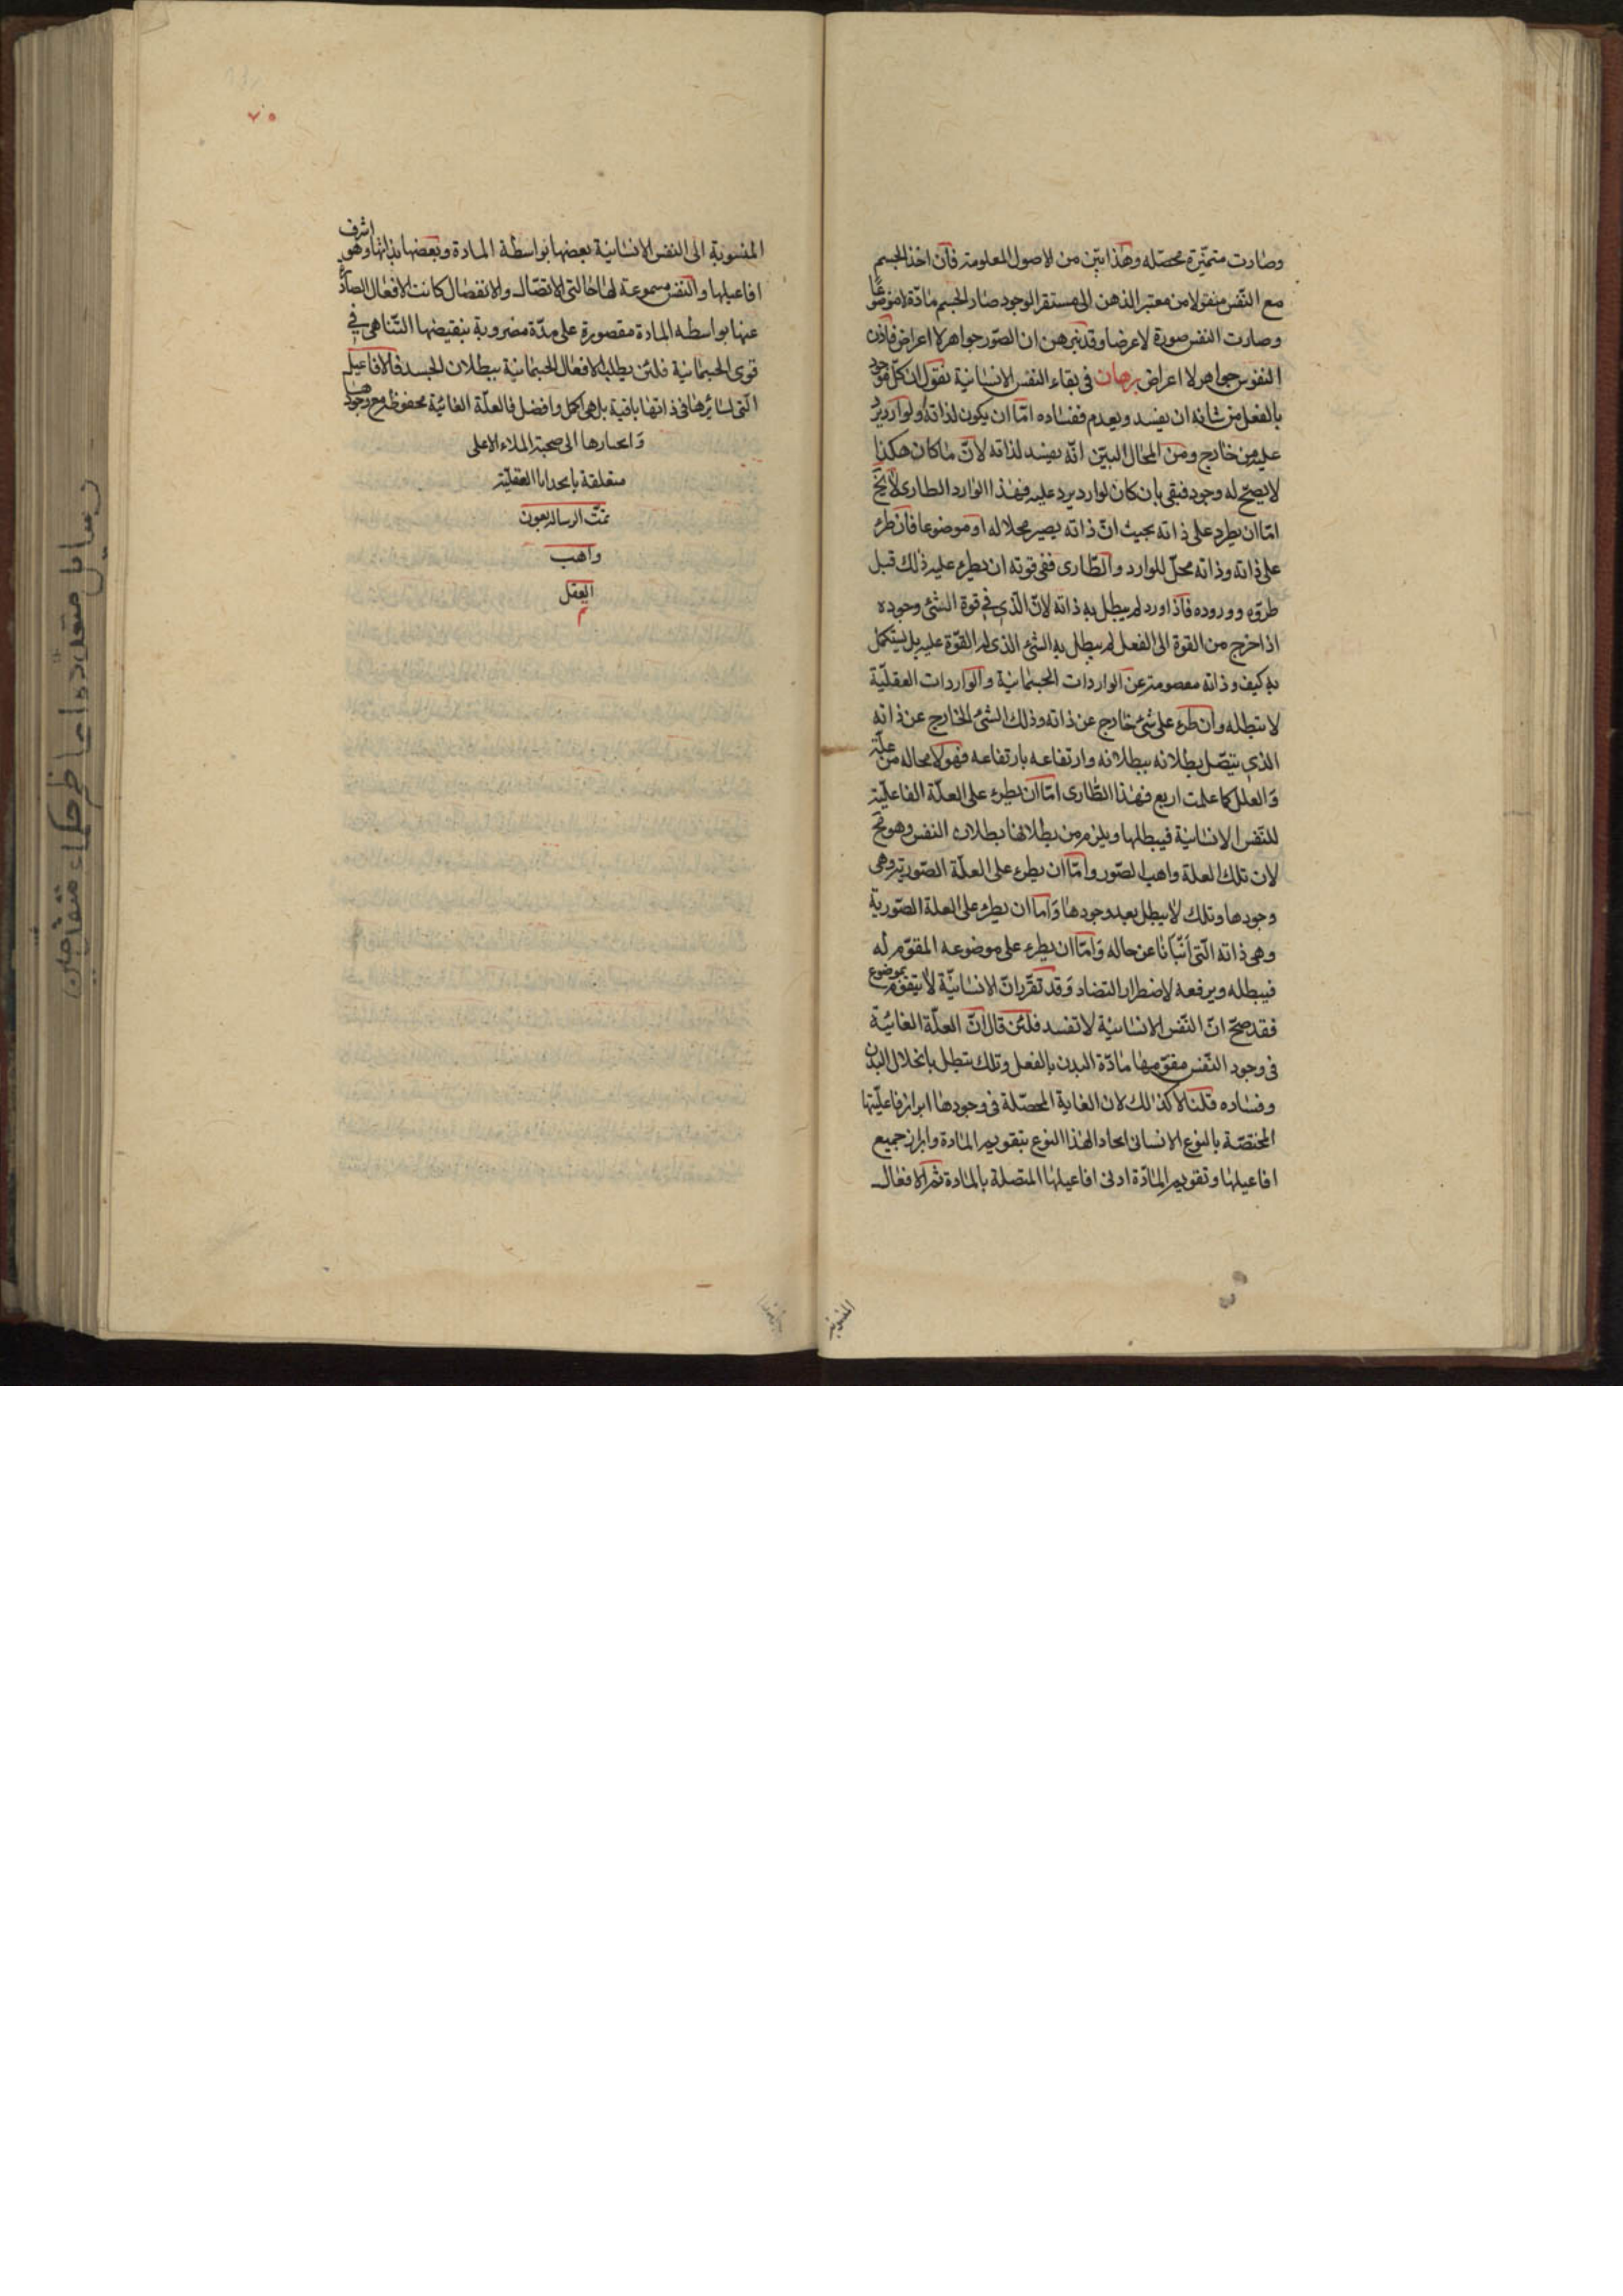 وصارت متميّزة محصّله وهذا بيّن من الاصول المعلومة فان اخذ الجسم
مع النّفس منقولا من معتبر الذهن الى مستقر الوجود صار الجسم مادّة لا موضوعًا
وصارت النفس صورة لا عرضا وقد تبرهن ان الصّور جواهر لا اعراض فاذن
النفوس جواهر لا اعراض برهان فى بقاء النفس الانسانية نقول ان كلّ موجود
بالفعل من شانه ان يفسد ويعدم ففساده امّا ان يكون لذاته او لوارد يرد
عليه من خارج ومن المحال البيّن انّه يفسد لذاته لانّ ما كان هكذا
لا يصحّ له وجود فبقى بان كان لوارد يرد عليه فهذا الوارد الطارى لا يخ
امّا ان يطرء على ذاته بحيث انّ ذاته يصير محلا له او موضوعا فان طرء
على ذاته وذاته محلّ للوارد والطّارى ففى قوته ان يطرء عليه ذلك قبل
طروّه ووروده فاذا ورد لم يبطل به ذاته لانّ الّذى فى قوة الشئ وجوده
اذا خرج من القوة الى الفعل لم يبطل به الشئ الذى له القوّة عليه بل يستكمل
به كيف وذاته معصومة عن الواردات الجسمانية والواردات العقليّة
لا تبطله وان طرء على شئ خارج عن ذاته وذلك الشئ الخارج عن ذاته
الذى يتّصل بطلانه ببطلانه وارتفاعه بارتفاعه فهو لا محاله من علّة
والعلل كما علمت اربع فهذا الطّارى امّا ان يطرء على العلّة الفاعليّة
للنّفس الانسانية فيبطلها ويلزم من بطلانها بطلان النفس وهو مح
لان تلك العلة واهب الصّور وامّا ان يطرء على العلّة الصّورية وهى
وجودها وتلك لا يبطل بعد وجودها واما ان يطرء على العلة الصّورية
وهى ذاته الّتى انبّانا عن حاله وامّا ان يطرء على موضوعه المقوّم له
فيبطله ويرفعه لاضطرار التضاد وقد تقرّر انّ الانسانيّة لا يتقوّم بموضوع
فقد صحّ انّ النّفس الانسانيّة لا تفسد فلئن قال انّ العلّة الغائيّة
فى وجود النّفس مقوّمها مادّة البدن بالفعل وتلك يتبطل بانحلال البدن
وفساده قلنا لا كذلك لان الغاية المحصّلة فى وجودها ابراز فاعليّتها
المختصّة بالنوع الانسانى اتحاد لهذا النوع بتقويم المادة وابراز جميع
افاعيلها وتقويم المادّة ادنى افاعيلها المتصلة بالمادة ثم الافعال
المنسوبة
المنسوبة الى النفس الانسانية بعضها بواسطة المادة وبعضها بذاتها وهو اشرف
افاعيلها والنفس مسموعة لها حالتى الاتصّال والانفصال كانت الافعال الصادرة
عنها بواسطه المادة مقصورة على مدّة مضروبة بنقيضها التّناهى فى
قوى الجسمانية فلئن بطلب الافعال الجسمانية ببطلان الجسد فالافاعيل
الّتى لسائرها فى ذاتها باقية بل هى اكمل وافضل فالعلّة الغائيّة محفوظة مع وجودها
الى صحبة الملاء الاعلى
متعلقة العقليّة
تمّت الرساله بعون
واهب
العقل
م
٧٥
رسايل متعدّده از حكماء متقدّمين